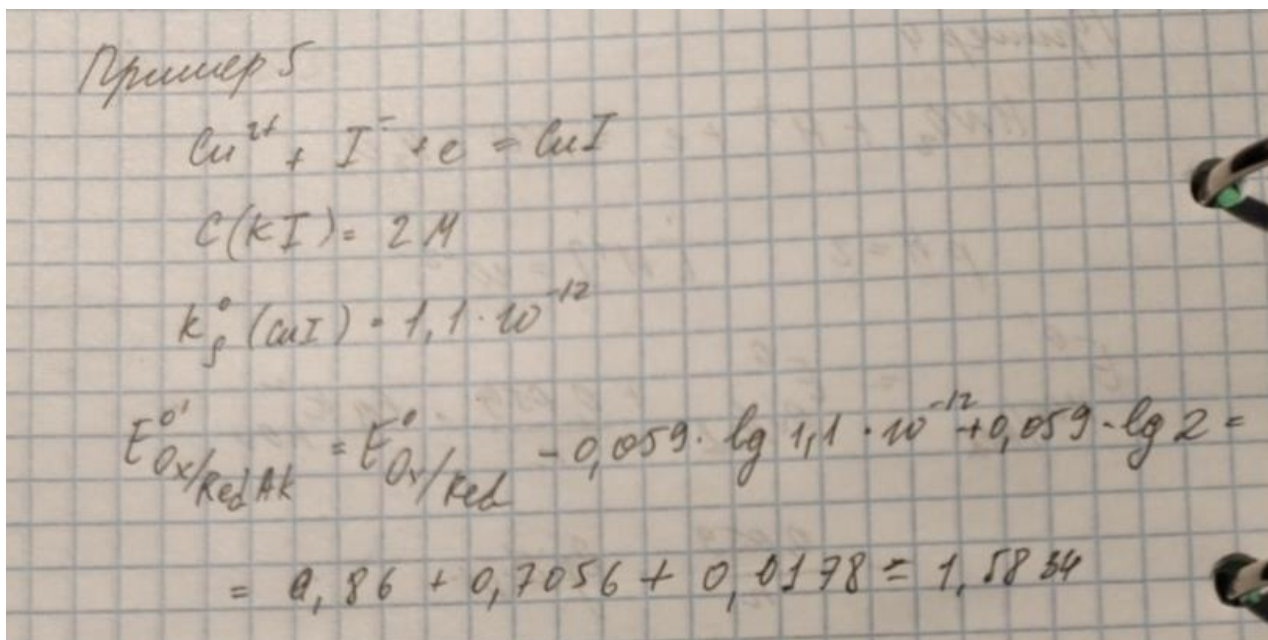 Пример 5
Cu²⁺ + I⁻ + e = CuI
C(KI) = 2 М
K°ₛ (CuI) = 1,1 · 10⁻¹²
E⁰'Ox/RedAk = E⁰Ox/Red - 0,059 · lg 1,1 · 10⁻¹² + 0,059 · lg 2 =
= 0,86 + 0,7056 + 0,0178 = 1,5834